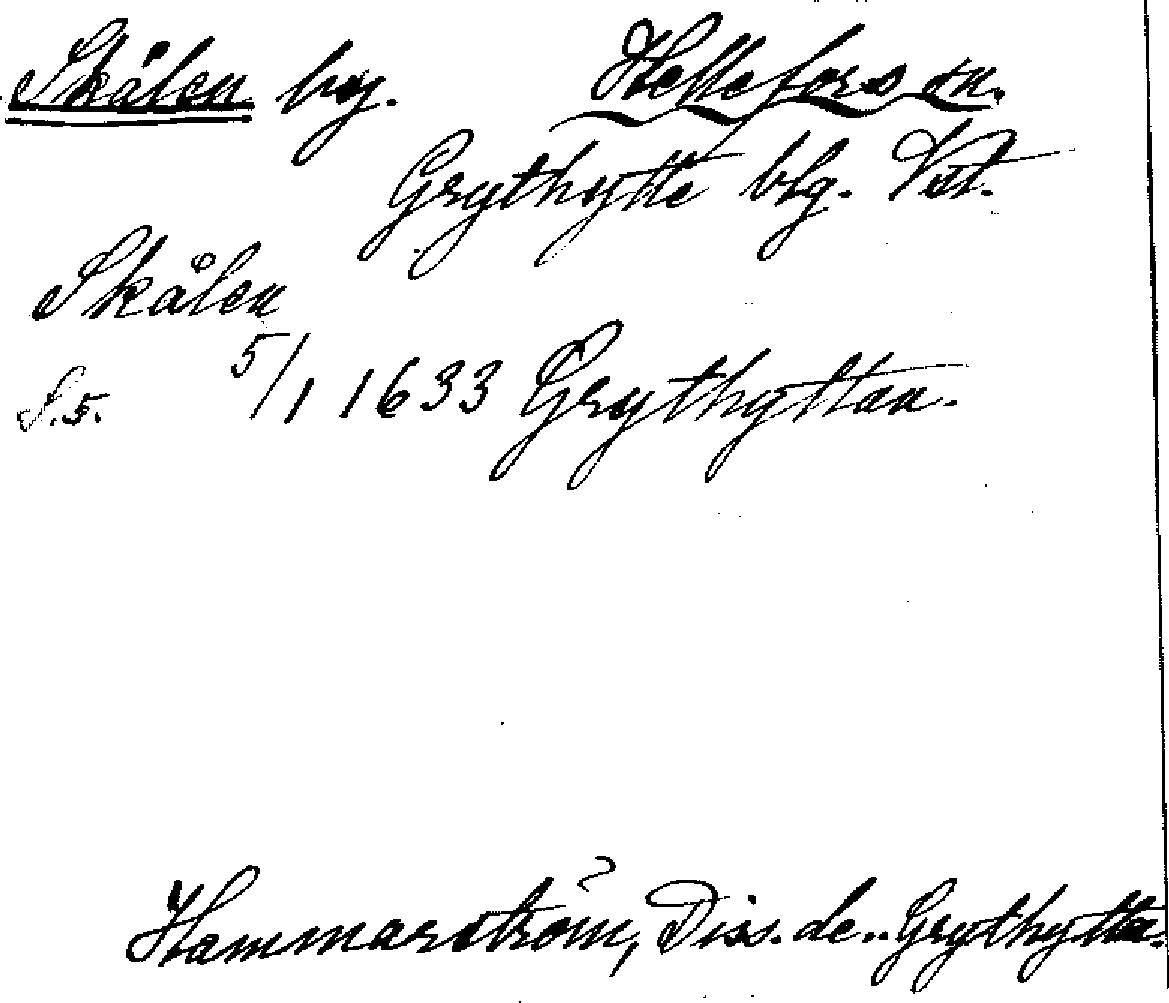 Skålen by. Hellefors sn.
Grythytte blg. Vstl.
Skålen
S.5. 5/1 1633 Grythyttan.
Hammarström, Diss. de.. Grythytta.